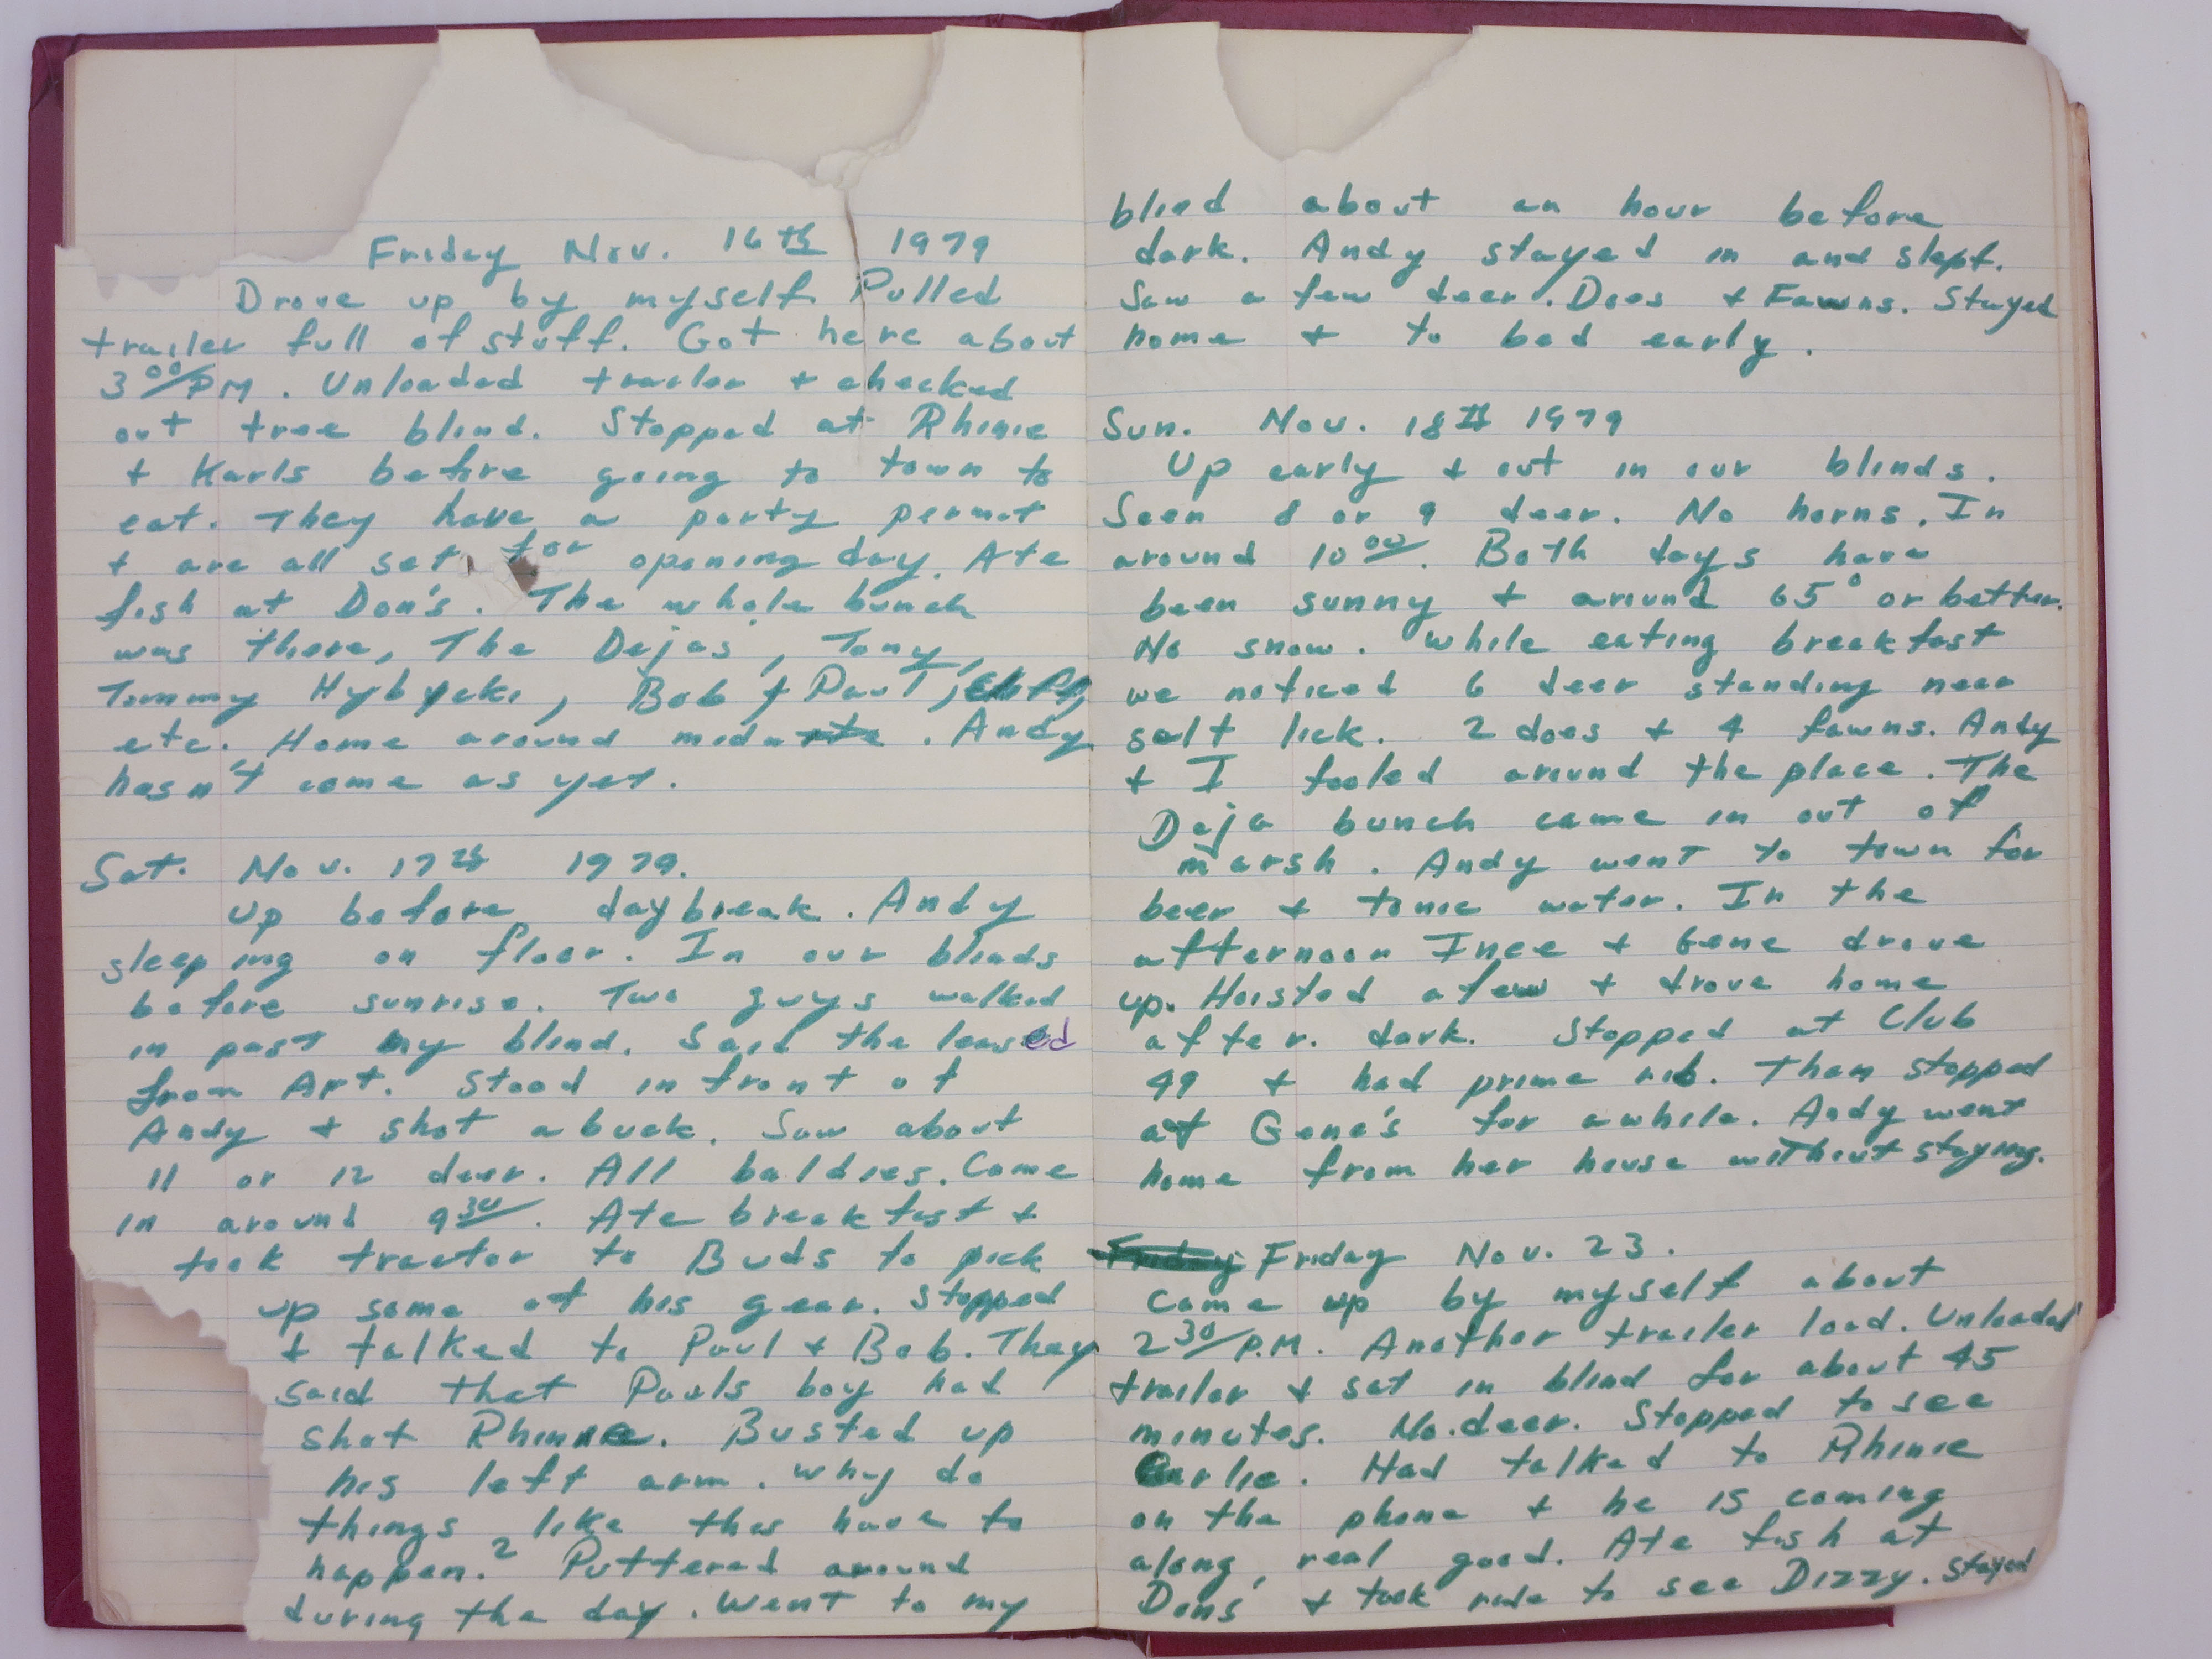 Friday Nov. 16th 1979
Drove up by myself. Pulled
trailer full of stuff. Got here about
3 00/PM. Unloaded trailer + checked
out tree blind. Stopped at Rhinie
+ Karls before going to town to
eat. They have a party permit
+ are all set for opening day. Ate
fish at Don's. The whole bunch
was there, The Dejas', Tony,
Tommy Hybycki, Bob & Paul,
etc. Home around . Andy
hasn't come as yet.
Sat. Nov. 17th 1979.
Up before daybreak. Andy
sleeping on floor. In our blinds
before sunrise. Two guys walked
in past my blind. Said the leased
from Art. Stood in front of
Andy + shot a buck. Saw about
11 or 12 deer. All baldies. Came
in around 9 30. Ate breakfast +
took tractor to Buds to pick
up some of his gear. Stopped
+ talked to Paul + Bob. They
said that Pauls boy had
shot Rhinie. Busted up
his left arm. Why do
things like this have to
happen.? Puttered around
during the day. Went to my
blied about an hour before
dark. Andy stayed in and slept.
Saw a few deer. Does + Fawns. Stayed
home + to bed early.
Sun. Nov. 18th 1979
Up early + out in our blinds.
Seen 8 or 9 deer. No horns. In
around 10 00. Both days have
been sunny + around 65° or better.
No snow. While eating breakfast
we noticed 6 deer standing near
salt lick. 2 does + 4 fawns. Andy
+ I fooled around the place. The
Deja bunch came in out of
marsh. Andy went to town for
beer + tonic water. In the
afternoon Inee + Gene drove
up. Hoisted a few + drove home
after. dark. Stopped at Club
49 + had prime rib. Then stopped
at Gene's for awhile. Andy went
home from her house without staying.
Friday Friday Nov. 23.
Came up by myself about
2 30/P.M. Another trailer load. Unloaded
trailer + sat in blind for about 45
minutes. No.deer. Stopped to see
Carlie. Had talked to Rhinie
on the phone + he is coming
along, real good. Ate fish at
Dons' + took ride to see Dizzy. Stayed